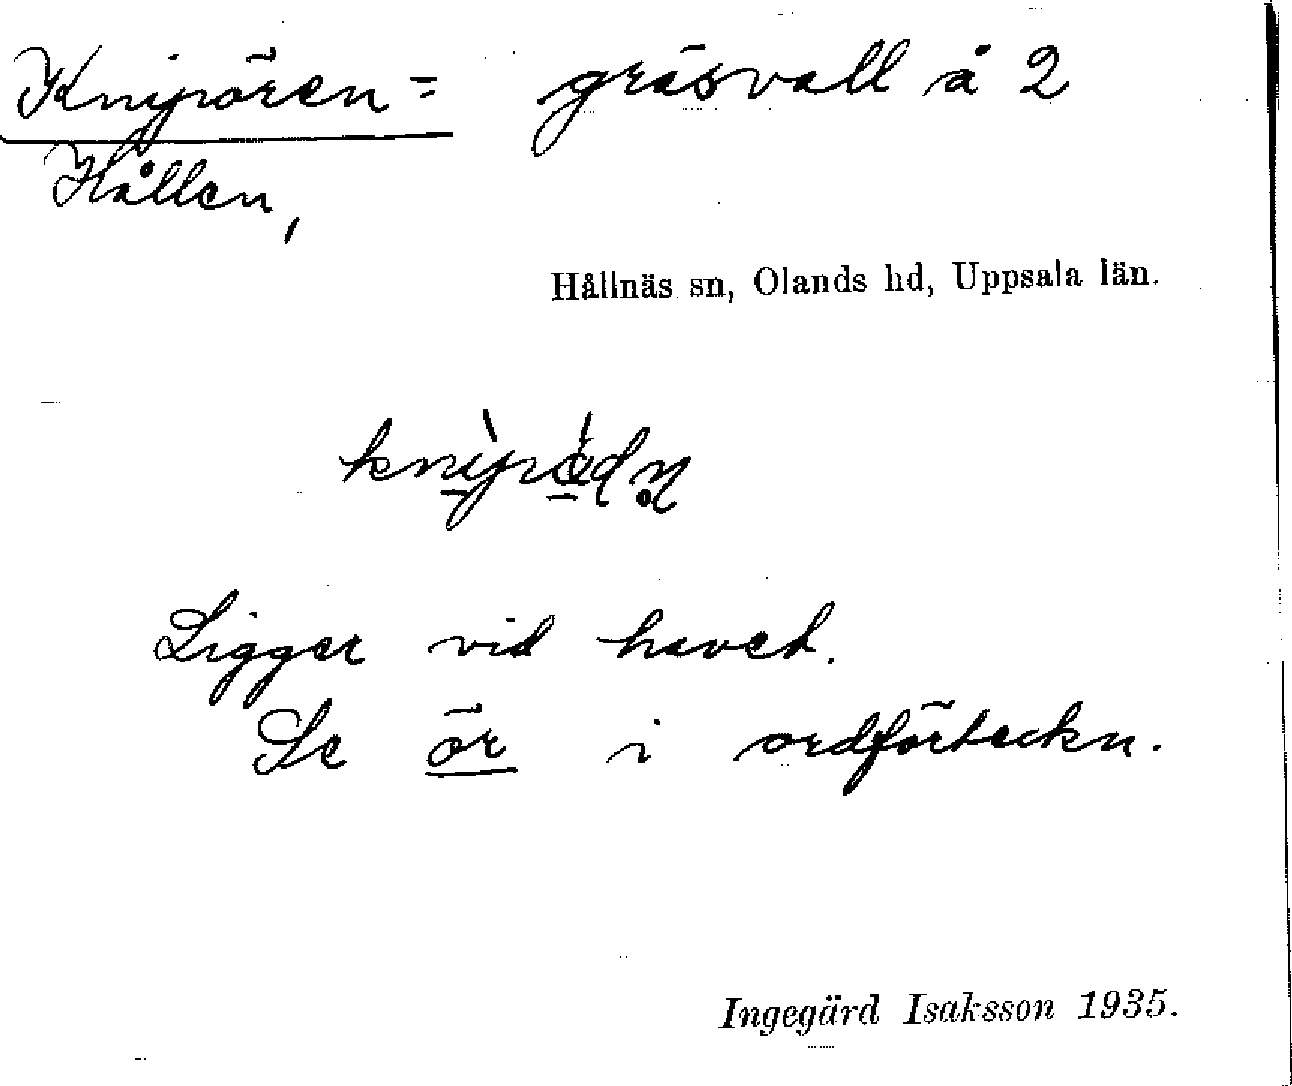 Kniporen= gräsvall å 2
Hållen,
Hållnäs sn, Olands hd, Uppsala län.
Ligger vid havet.
Se ör i ordförteckn.
Ingegärd Isaksson 1935.